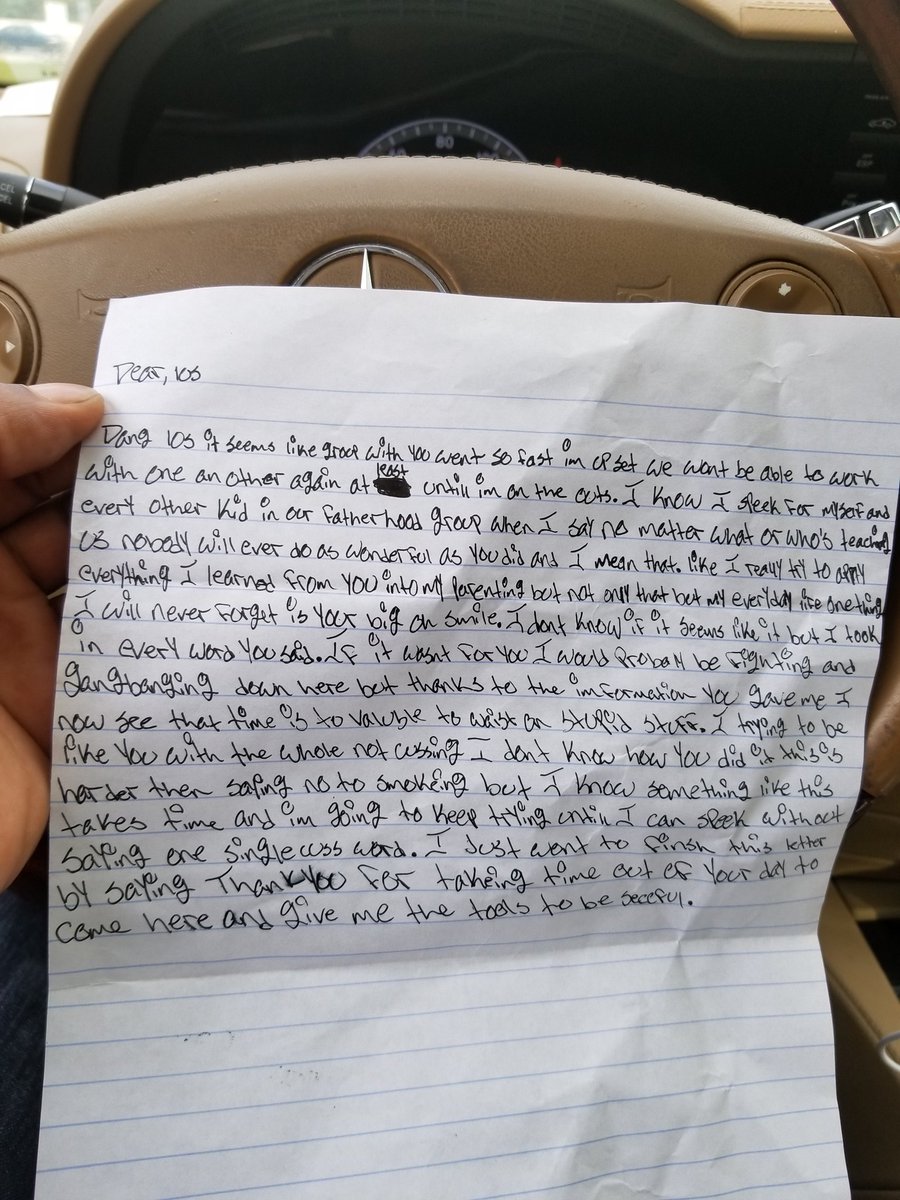 80
ESP
CEL
Dear, los
Dang los it seems like groop with you went so fast im upset we wont be able to work
with one an other again at least untill im on the outs. I know I speek for myself and
evert other kid in our fatherhood group when I say no matter what or who's teaching
us nobody will ever do as wonderful as you did and I mean that. like I really try to apply
everything I learned from you into my parenting but not only that but my everyday life one thing
I will never forget is your big on smile. I dont know if it seems like it but I took
in every word you said. If it wasnt for you I would probaly be fighting and
gangbanging down here but thanks to the information you gave me I
now see that time is to valuble to waist on stupid stuff. I trying to be
like you with the whole not cussing I dont know how you did it this is
harder then saying no to smokeing but I know something like this
takes time and im going to keep trying untill I can speek without
saying one single cuss word. I just went to finsh this letter
by saying Thank you for takeing time out of your day to
come here and give me the tools to be seceful.